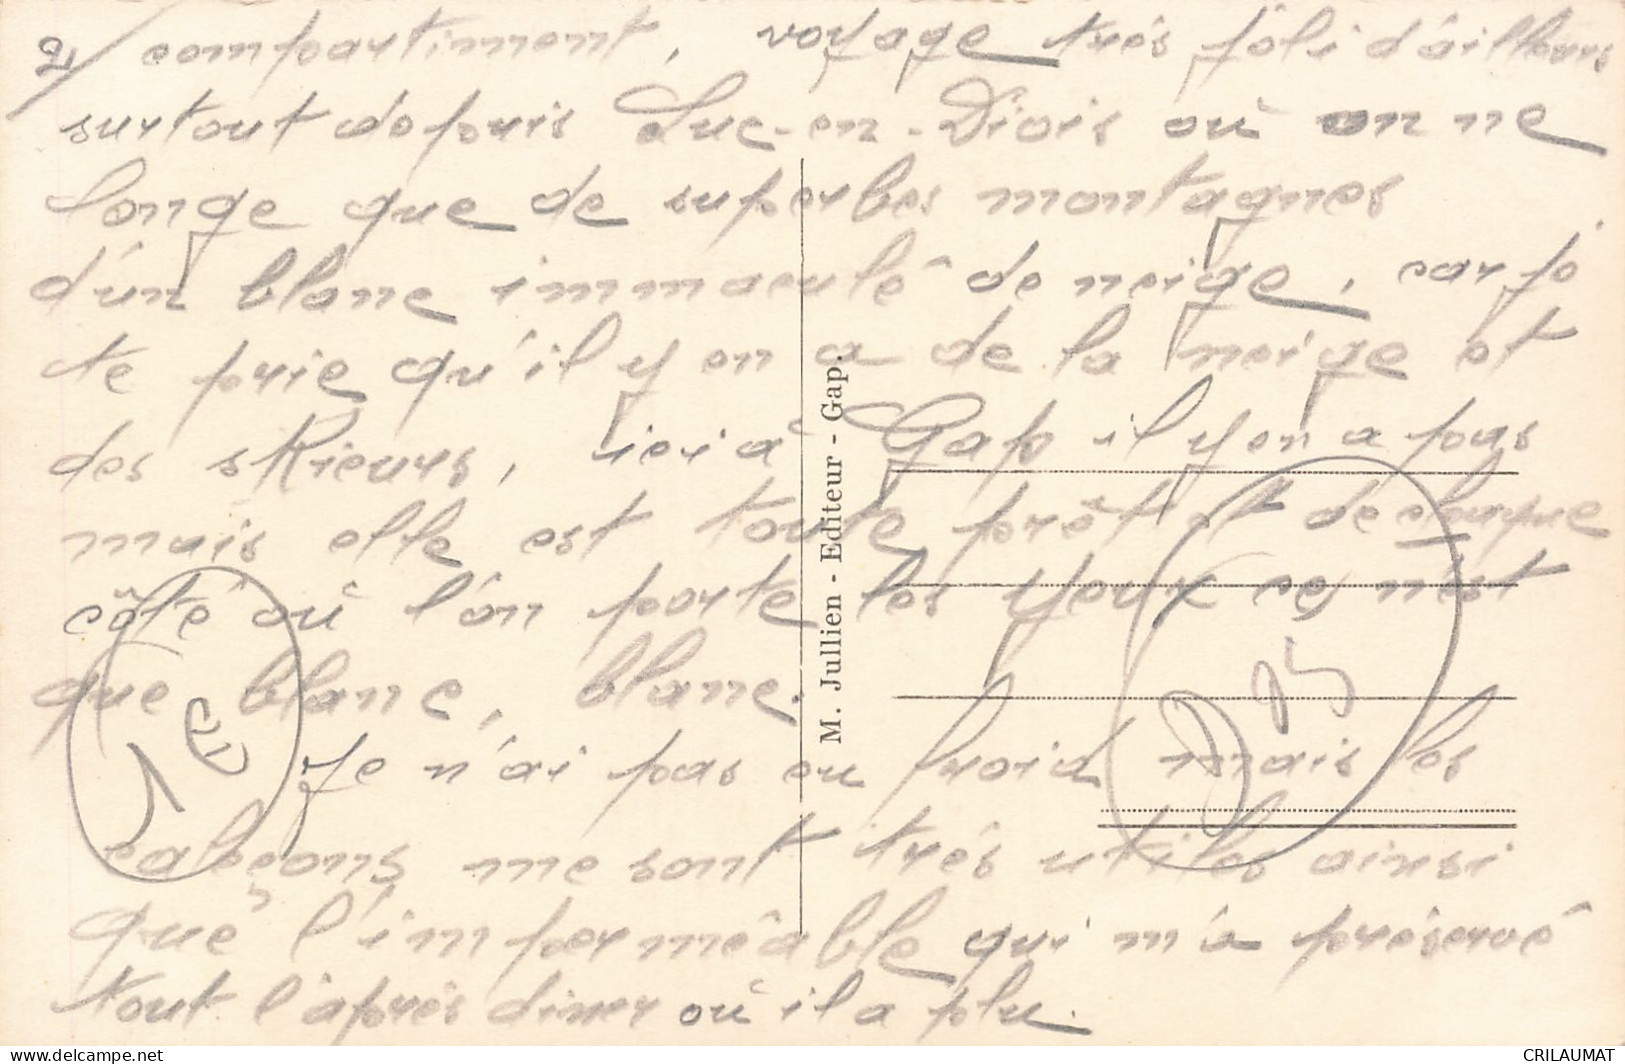 2/ compartiment, voyage très joli d'ailleurs
surtout depuis Luc-en-Diois où on ne
longe que de superbes montagnes
d'un blanc immaculé de neige, car je
te prie qu'il y en a de la neige et
des skieurs, ici à Gap il y en a pas
mais elle est toute prêt et de chaque
côté où l'on porte les yeux ce n'est
que blanc, blanc.
Je n'ai pas eu froid mais les
caleçons me sont très utiles ainsi
que l'imperméable qui m'a préservé
tout l'après diner où il a plu.
M. Jullien - Editeur - Gap.
CRILAUMAT